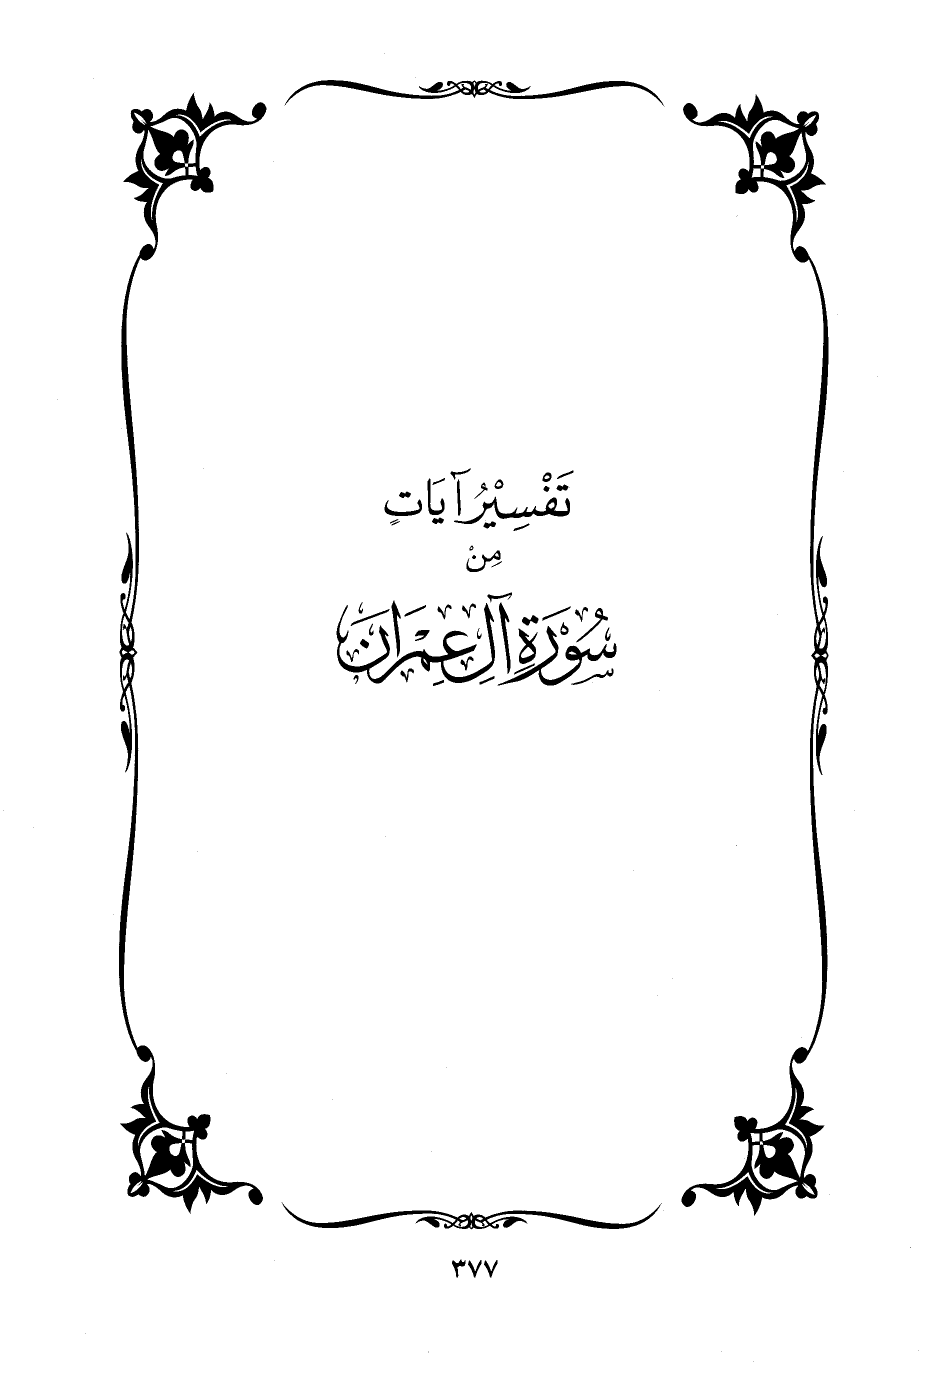 تَفْسِيْرُ آيَاتٍ
مِنْ
سُوْرَةِ آلِ عِمْرَانَ
٣٧٧